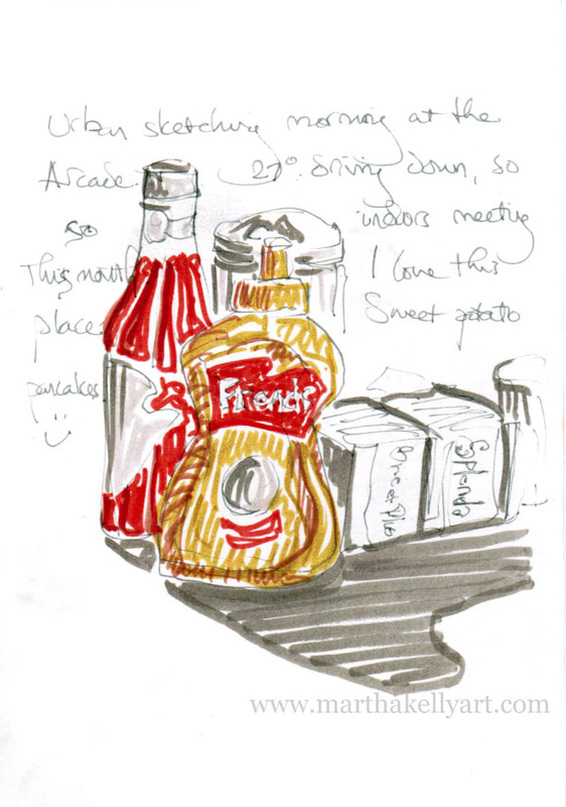 Urban sketching morning at the
Arcade. 27° driving down, so
so indoors meeting
This month I love this
place Sweet potato
pancakes
Friends
Splenda
www.marthakellyart.com